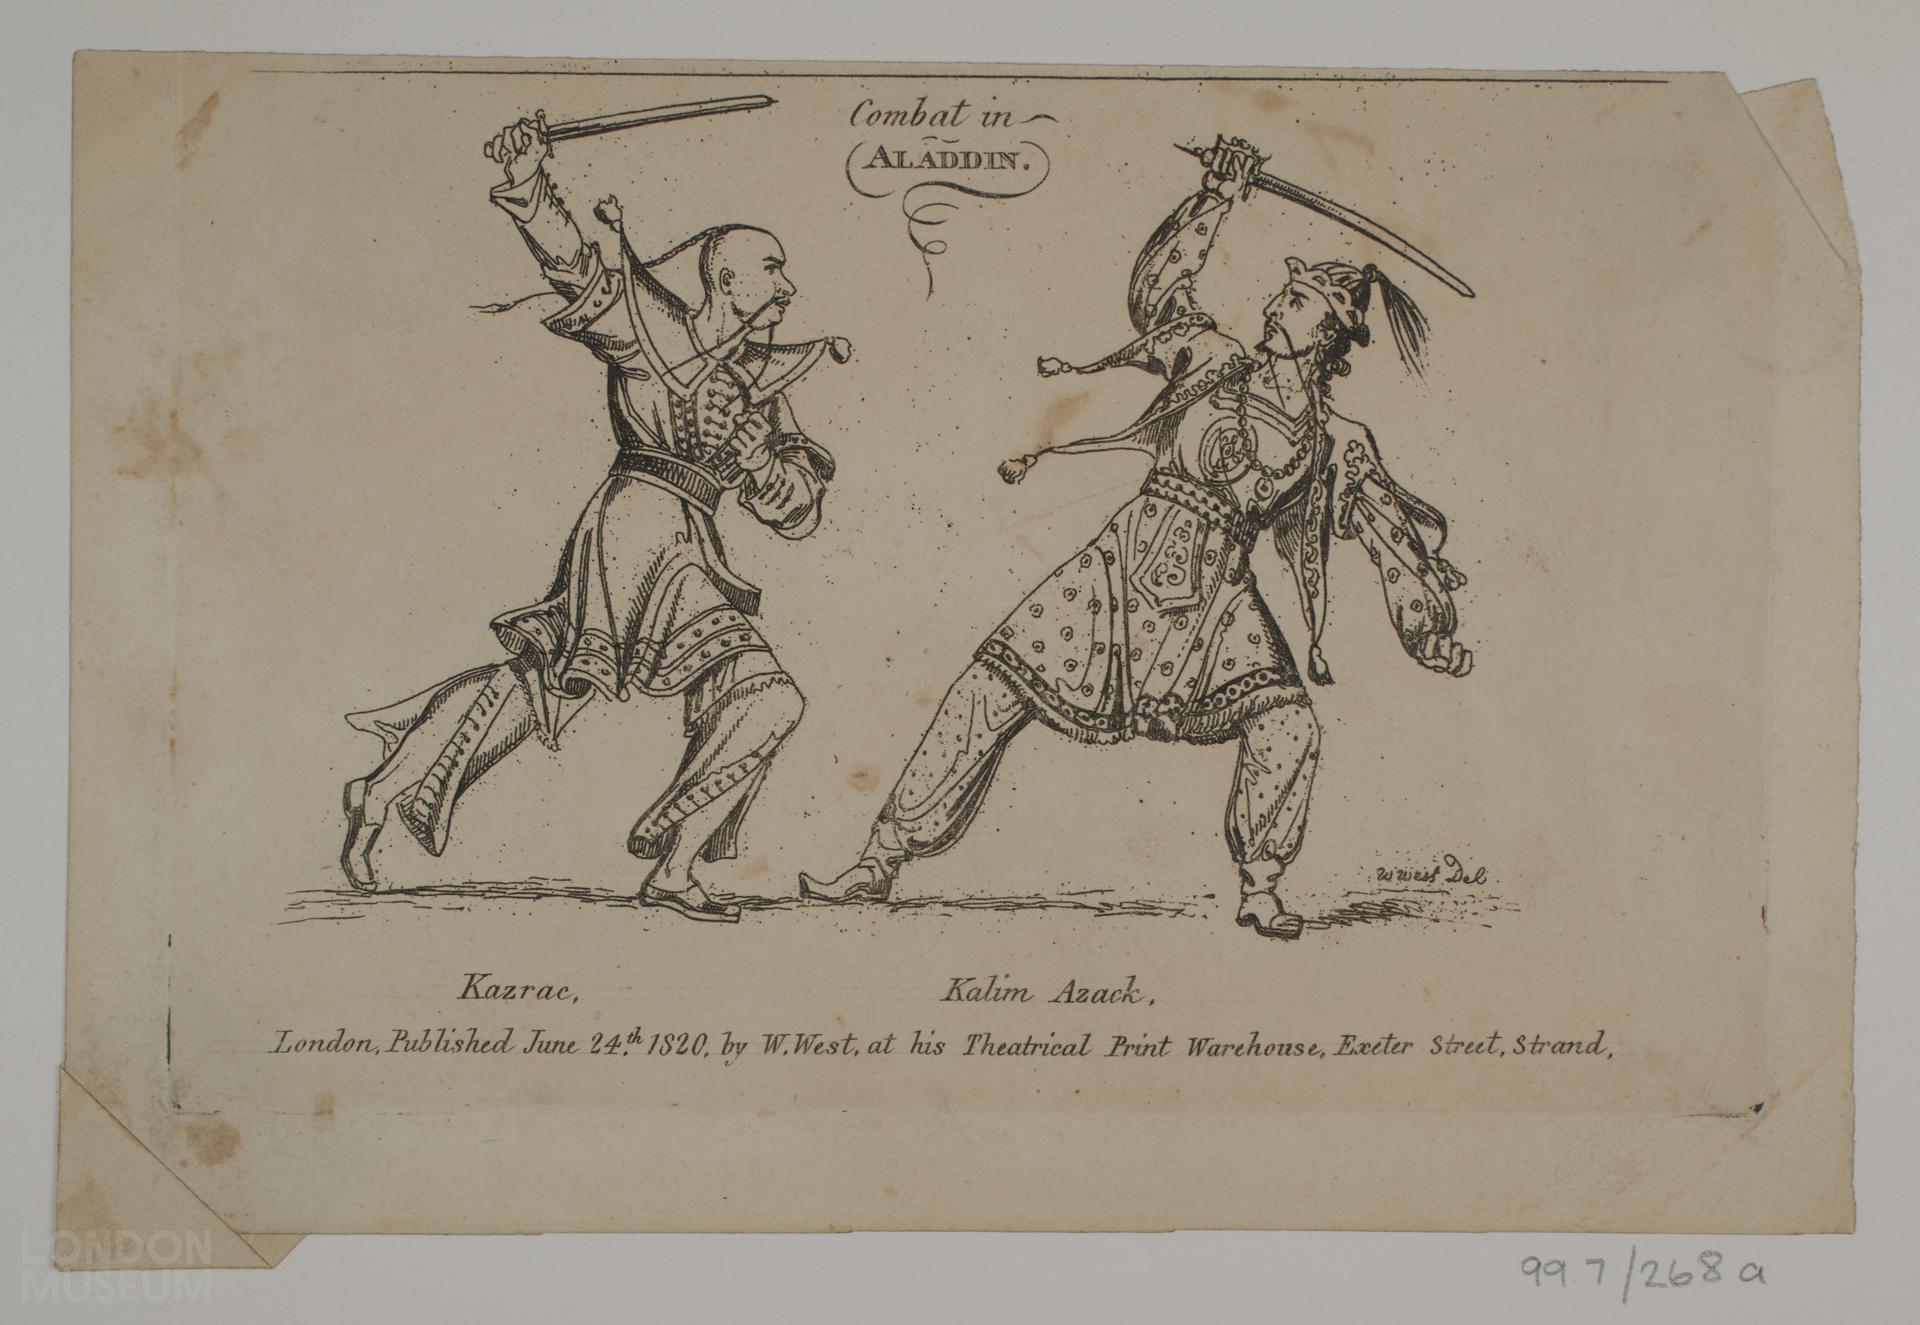 Combat in
ALADDIN.
W West Del
Kazrac,
Kalim Azack,
London, Published June 24.th 1820, by W. West, at his Theatrical Print Warehouse, Exeter Street, Strand,
LONDON
MUSEUM
99.7/268a